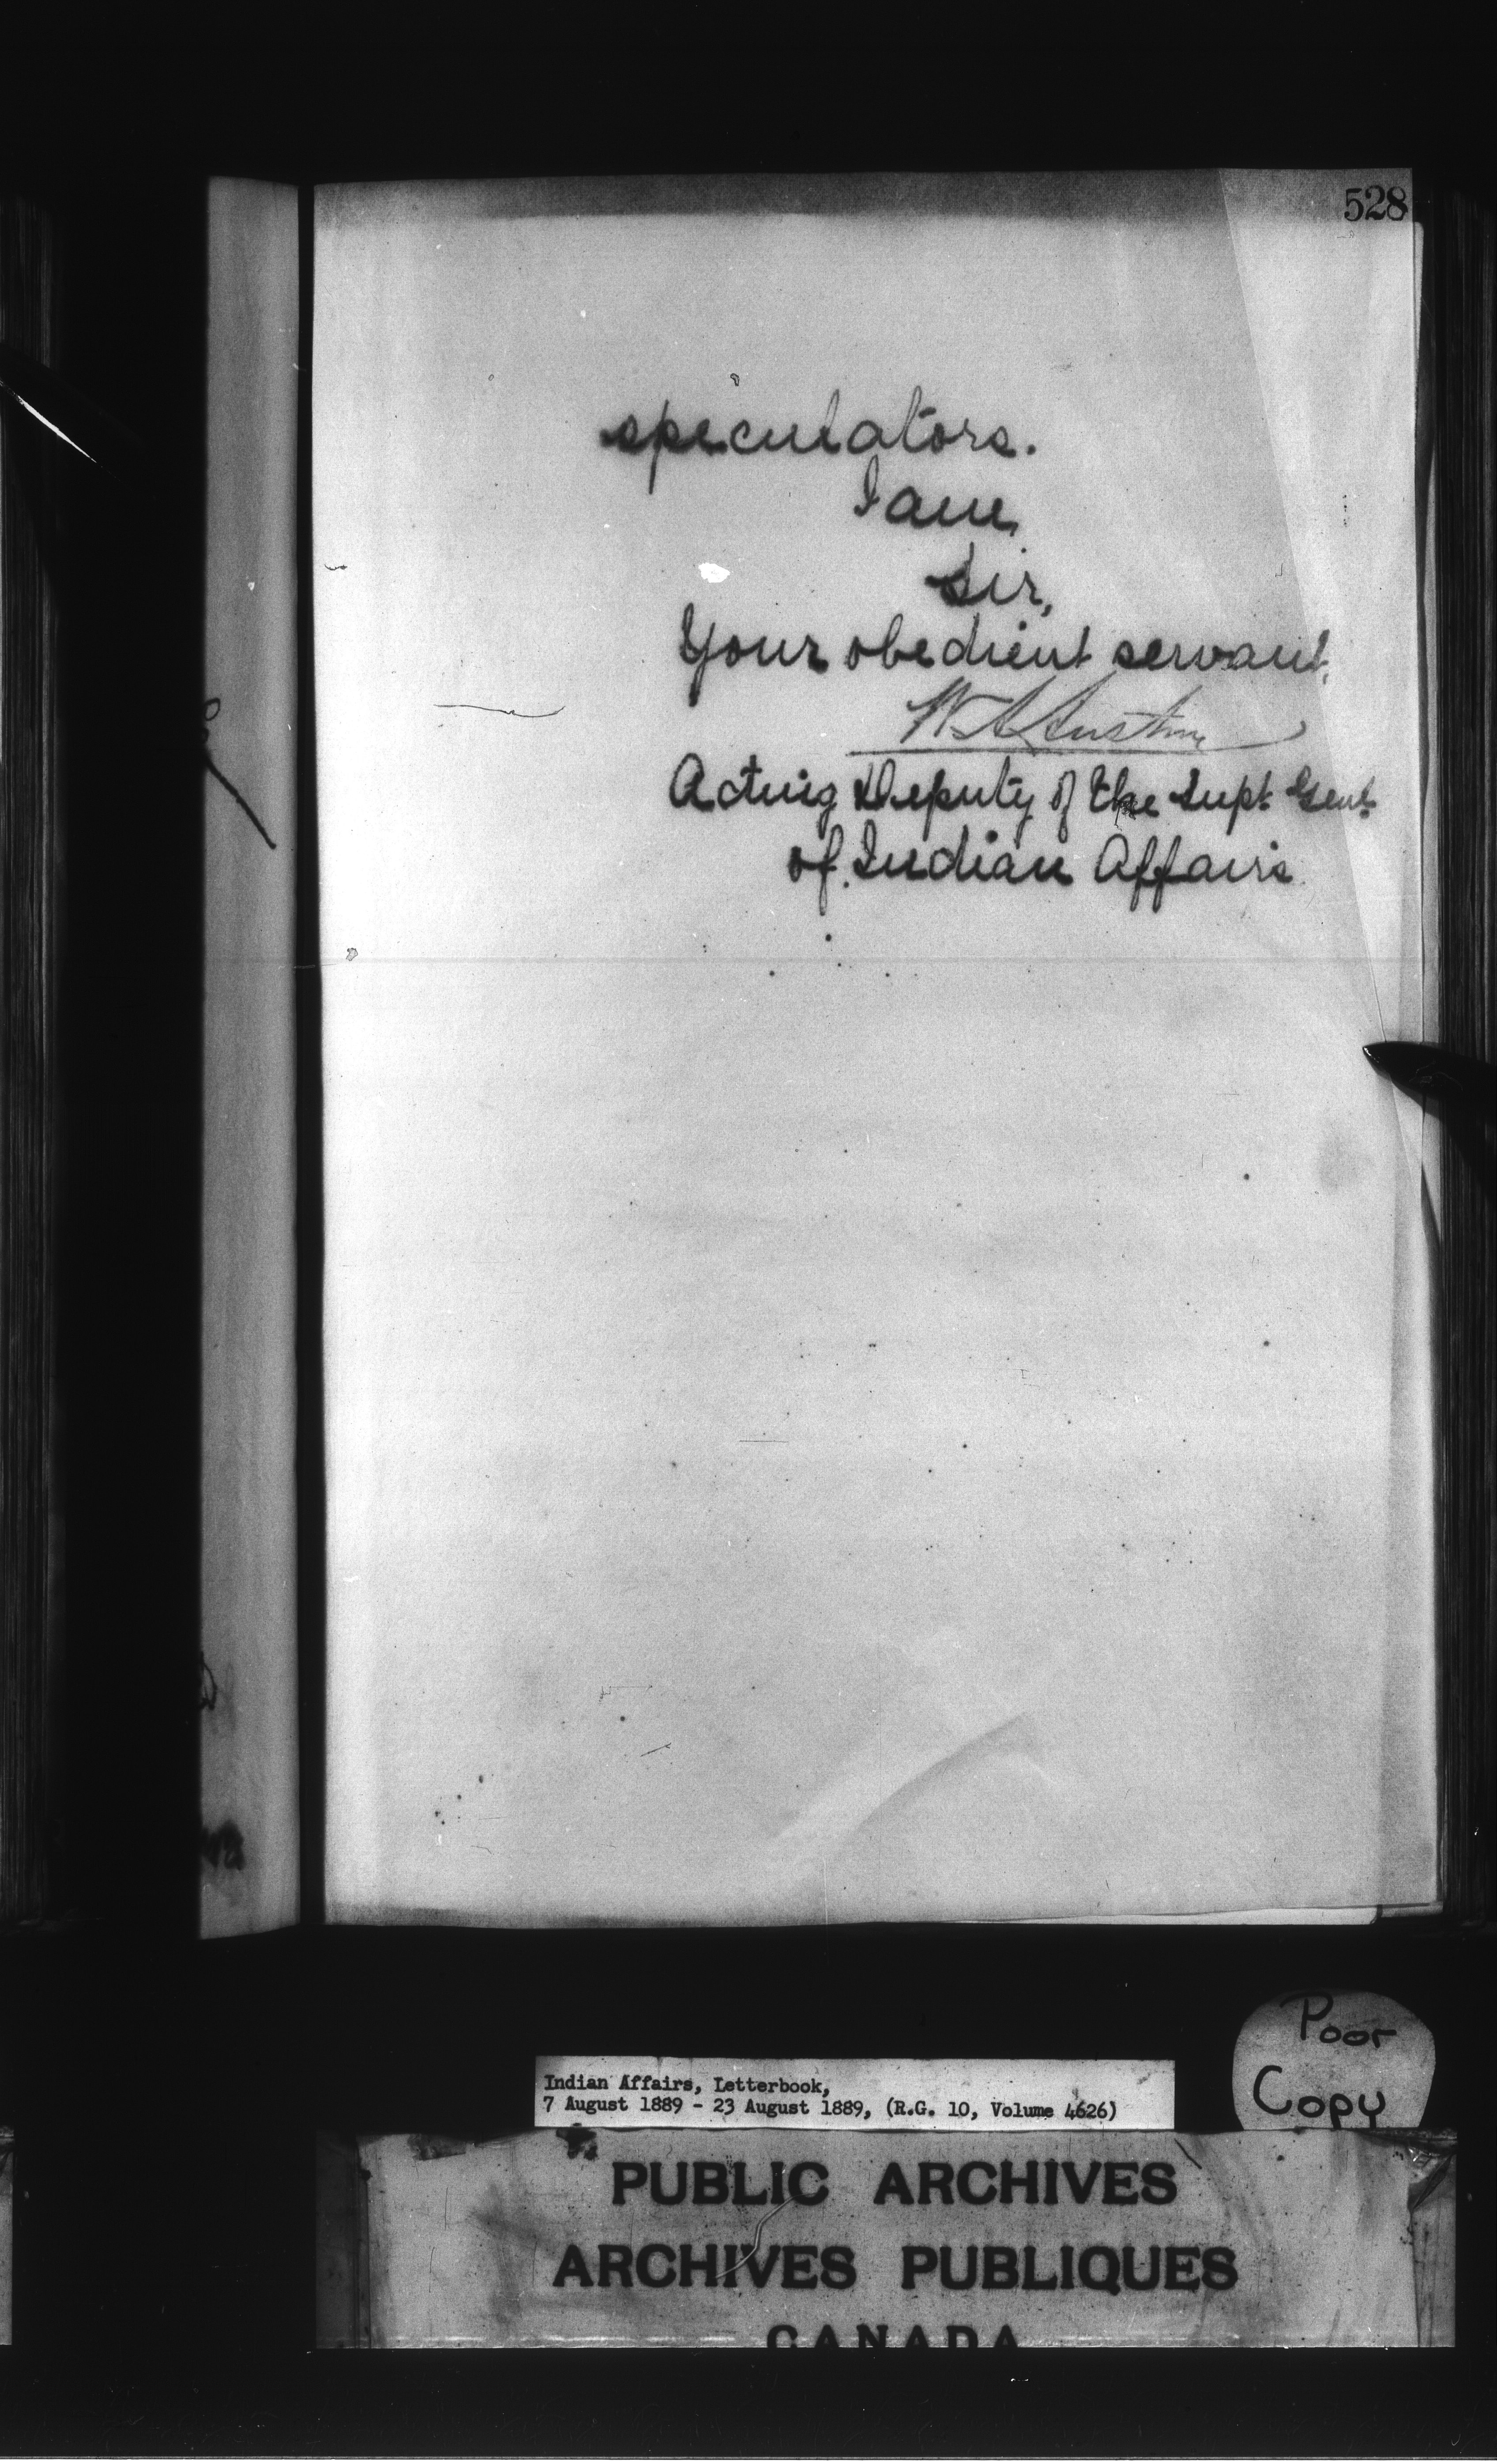 528
speculators.
I am,
Sir,
Your obedient servant,
W A Austin
Acting Deputy of the Supt Genl.
of Indian Affairs
Poor
Copy
Indian Affairs, Letterbook,
7 August 1889 - 23 August 1889, (R.G. 10, Volume 4626)
PUBLIC ARCHIVES
ARCHIVES PUBLIQUES
CANADA